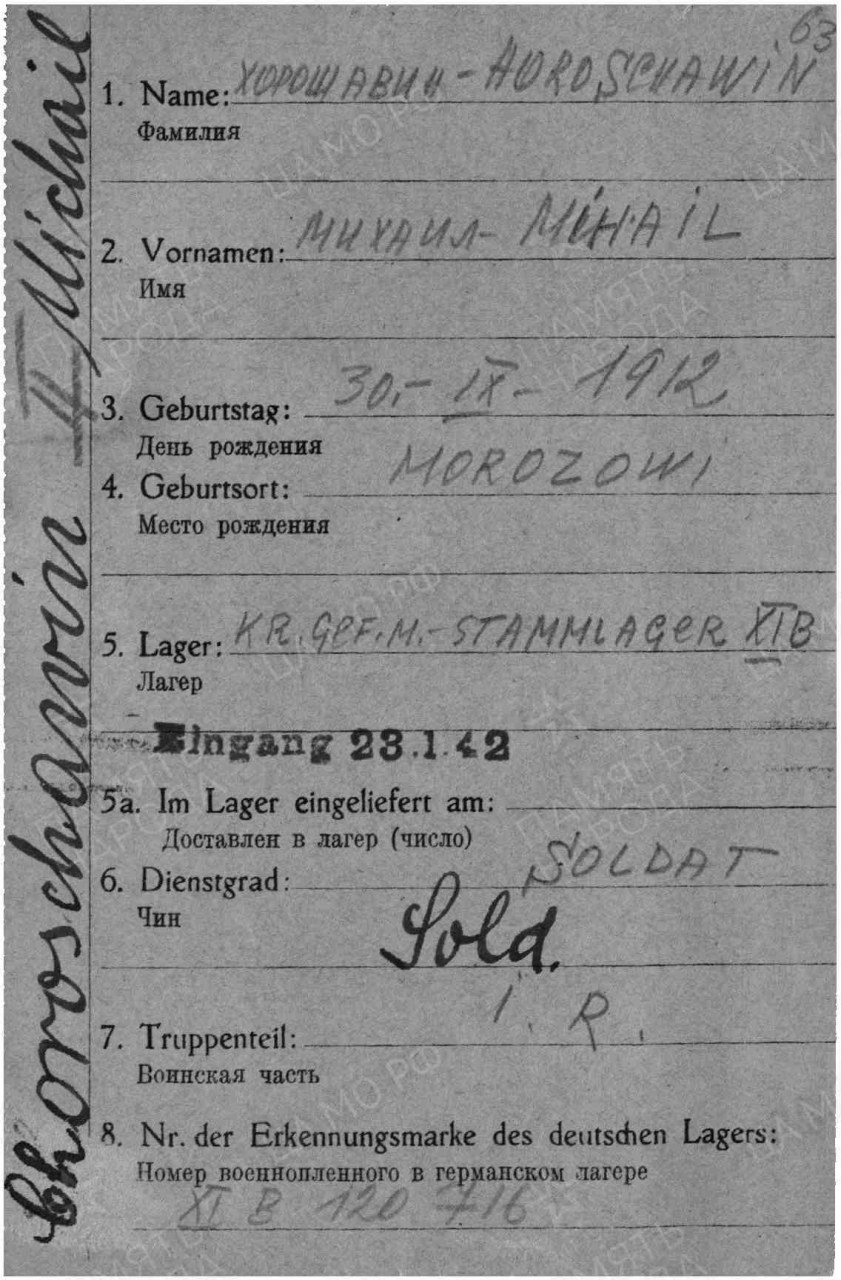 63
1. Name: ХОРОШАВИН - HOROSCHAWIN
Фамилия
2. Vornamen: МИХАИЛ - MIHAIL
Имя
3. Geburtstag: 30.- IX - 1912
День рождения
4. Geburtsort: MOROZOWI
Место рождения
5. Lager: KR. GEF. M.-STAMMLAGER XI B
Лагер
Eingang 23.1.42
5a. Im Lager eingeliefert am:
Доставлен в лагер (число)
6. Dienstgrad: SOLDAT
Чин
Sold.
7. Truppenteil: I. R.
Воинская часть
8. Nr. der Erkennungsmarke des deutschen Lagers:
Номер военнопленного в германском лагере
XI B 120 716
Choroschawin II Michail
ЦАМО РФ
ПАМЯТЬ
НАРОДА